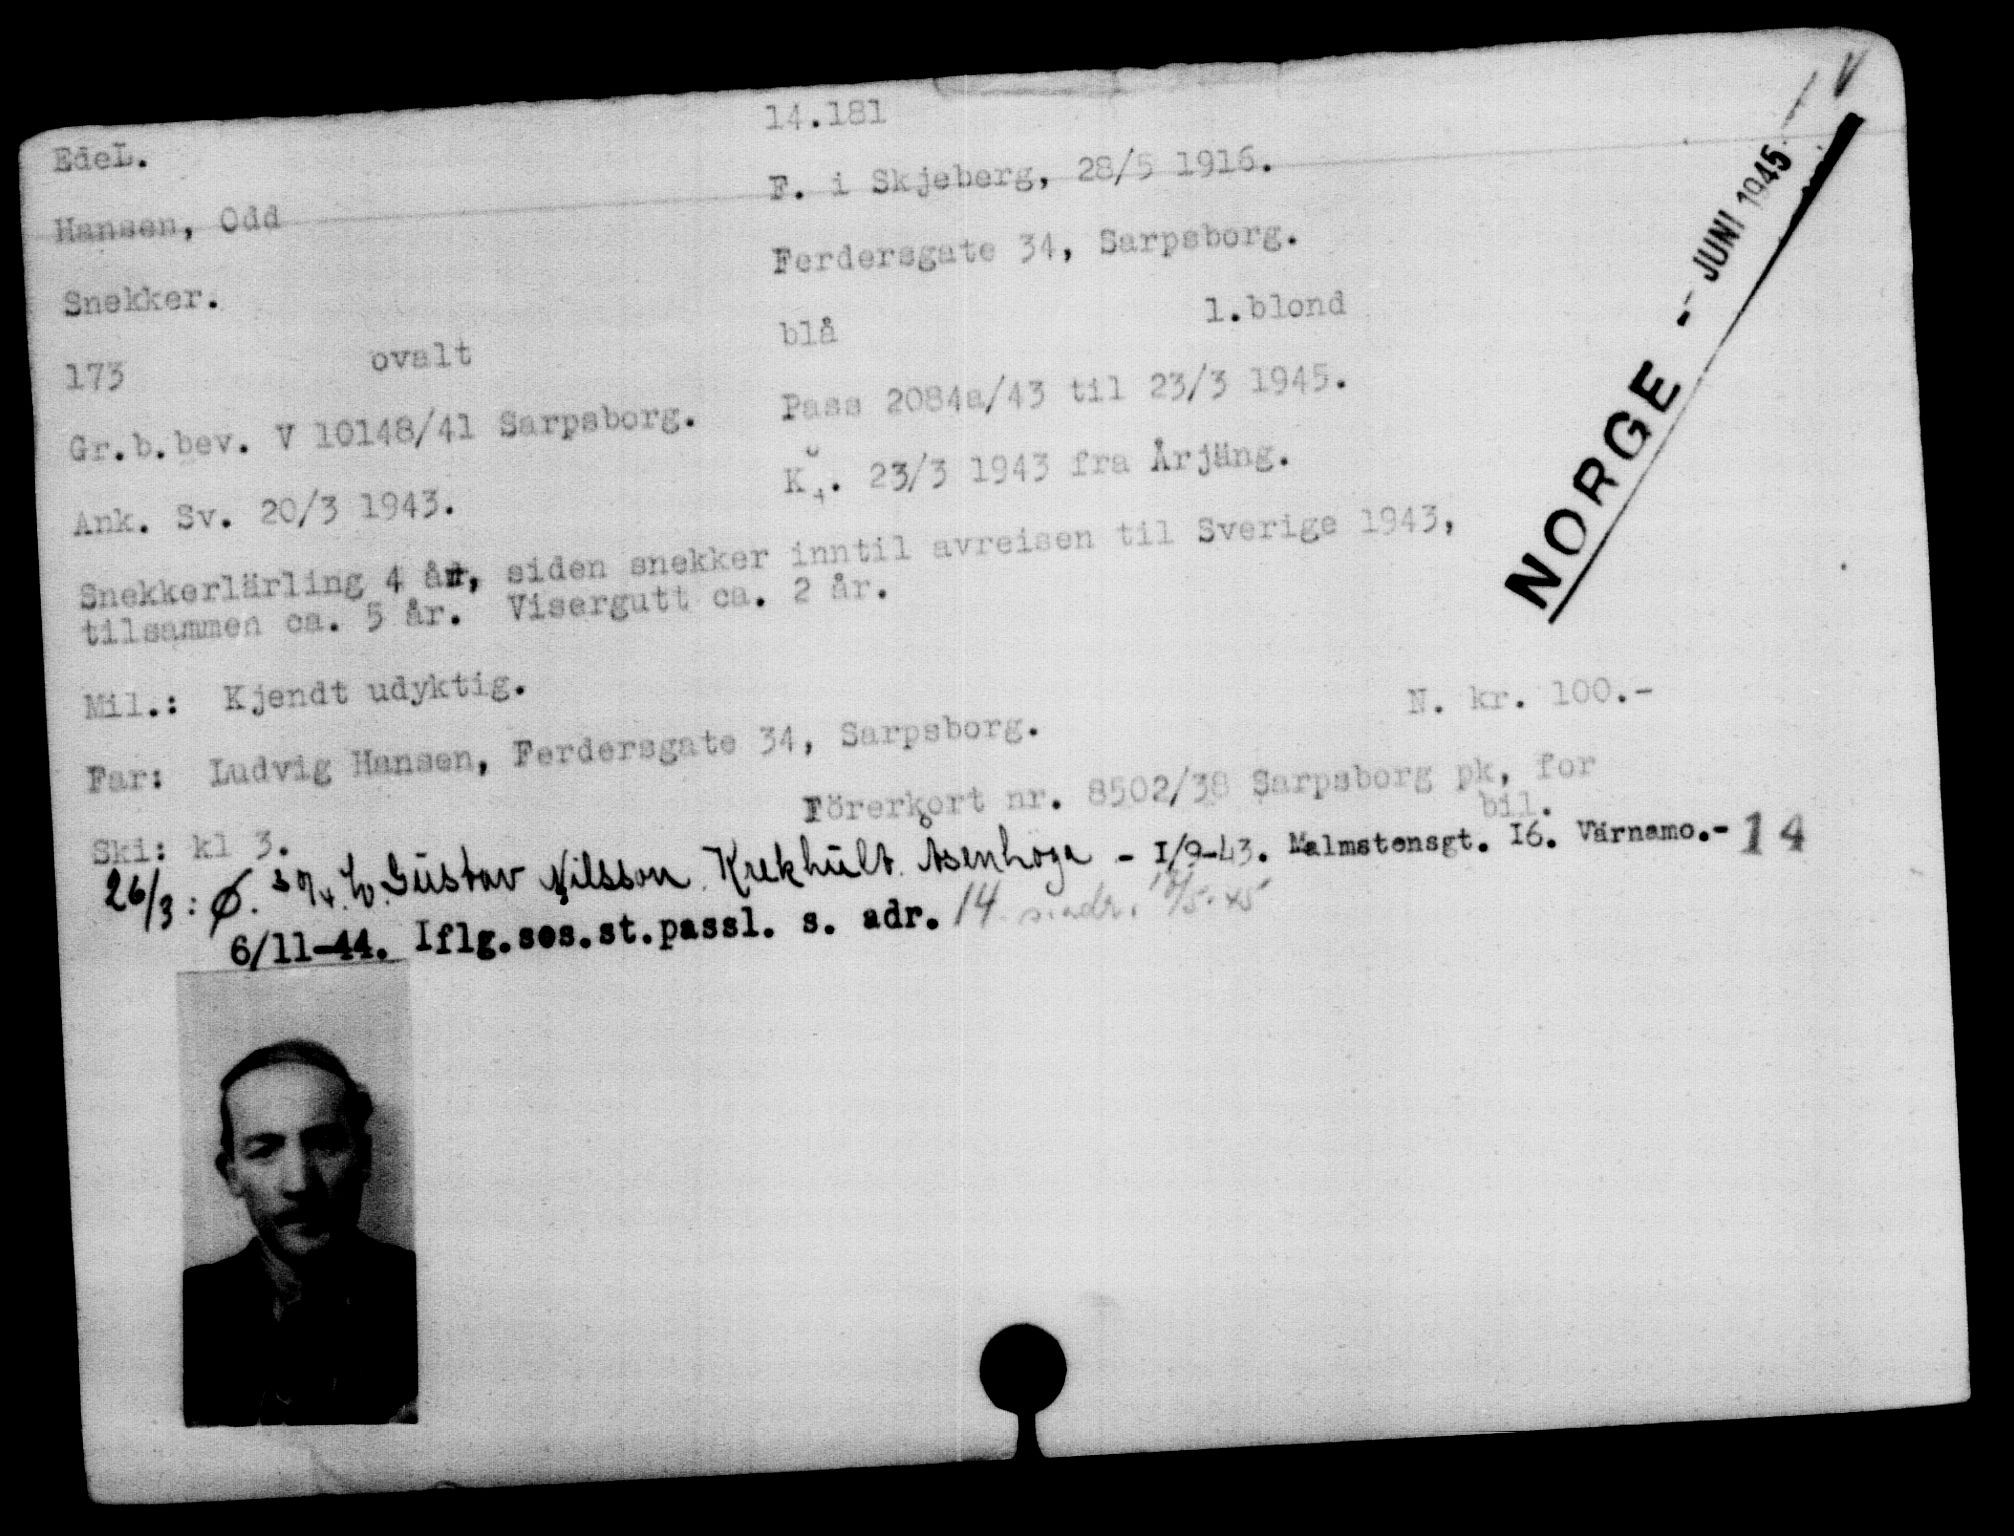 14.181
EdeL.
F. i Skjeberg, 28/5 1916.
Hansen, Odd
Ferdersgate 34, Sarpsborg.
Snekker.
173 ovalt blå l.blond
Gr.b.bev. V 10148/41 Sarpsborg. Pass 2084a/43 til 23/3 1945.
Ank. Sv. 20/3 1943. K. 23/3 1943 fra Årjäng.
Snekkerlärling 4 år, siden snekker inntil avreisen til Sverige 1943,
tilsammen ca. 5 år. Visergutt ca. 2 år.
Mil.: Kjendt udyktig. N. kr. 100.-
Far: Ludvig Hansen, Ferdersgate 34, Sarpsborg.
Ski: kl 3. Förerkort nr. 8502/38 Sarpsborg pk, for
bil.
26/3: Ø. Gustav Nilsson, Krekhult, Åsenhöga - 1/9-43. Malmstensgt. 16. Värnamo.- 14
6/11-44. Iflg.sos.st.passl. s. adr. 14 s. adr.
NORGE -- JUNI 1945